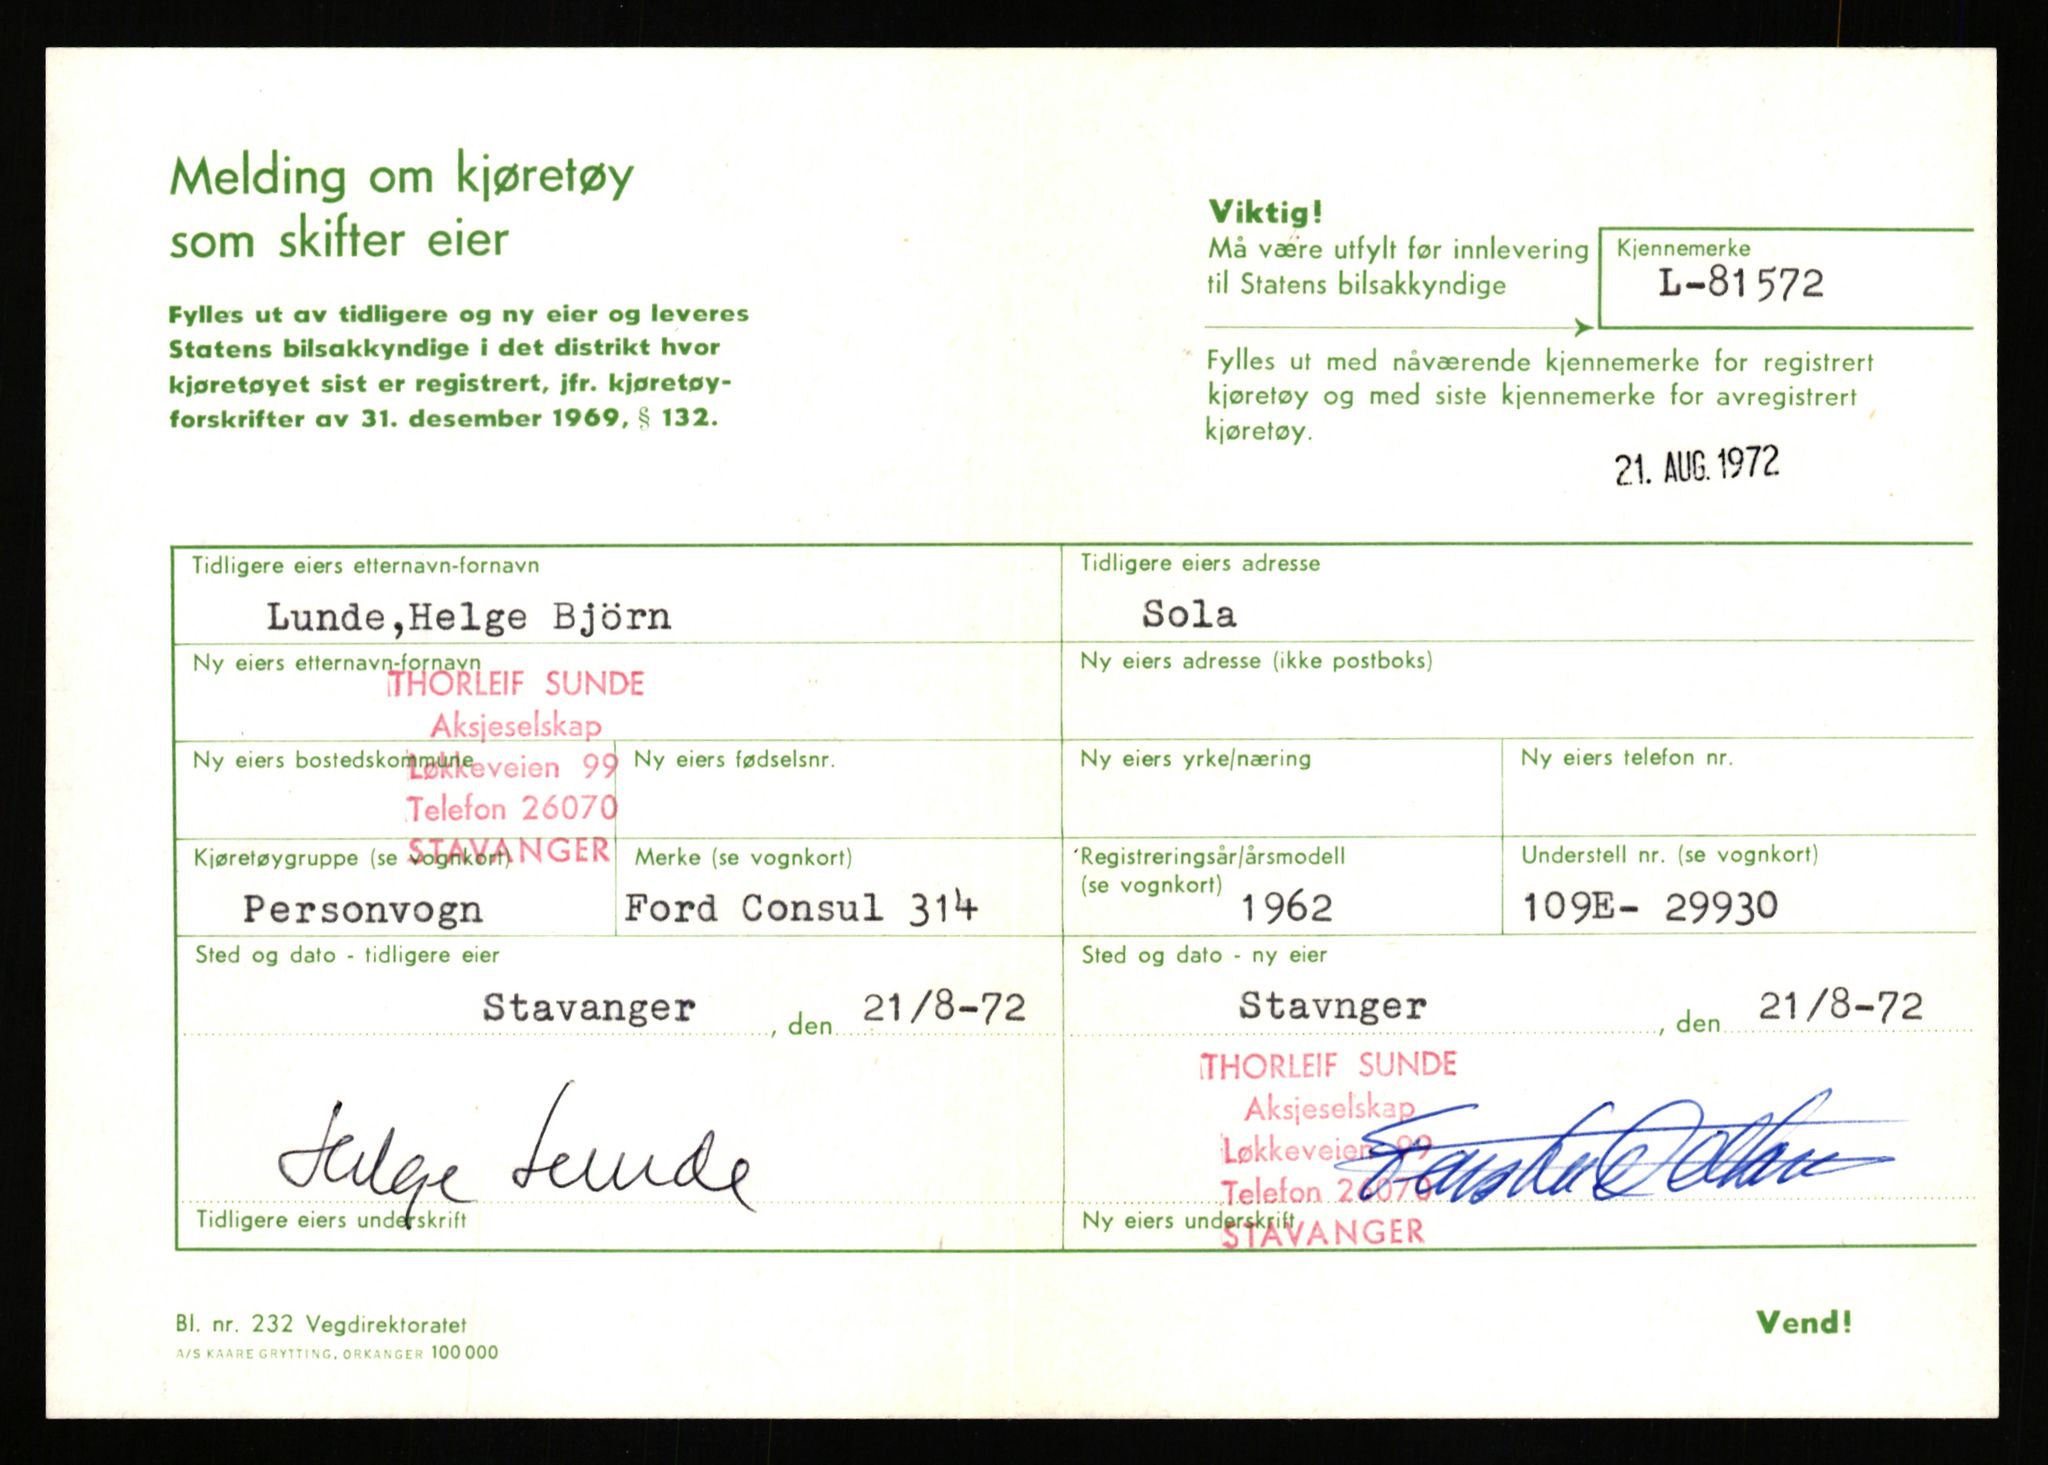 Melding om kjøretøy
som skifter eier
Fylles ut av tidligere og ny eier og leveres
Statens bilsakkyndige i det distrikt hvor
kjøretøyet sist er registrert, jfr. kjøretøy-
forskrifter av 31. desember 1969, § 132.
Viktig!
Må være utfylt før innlevering
til Statens bilsakkyndige
Kjennemerke
L-81572
Fylles ut med nåværende kjennemerke for registrert
kjøretøy og med siste kjennemerke for avregistrert
kjøretøy.
21. AUG. 1972
Tidligere eiers etternavn-fornavn
Lunde,Helge Björn
Tidligere eiers adresse
Sola
Ny eiers etternavn-fornavn
THORLEIF SUNDE
Aksjeselskap
Løkkeveien 99
Telefon 26070
STAVANGER
Ny eiers adresse (ikke postboks)
Ny eiers bostedskommune
Ny eiers fødselsnr.
Ny eiers yrke/næring
Ny eiers telefon nr.
Kjøretøygruppe (se vognkort)
Personvogn
Merke (se vognkort)
Ford Consul 314
Registreringsår/årsmodell
(se vognkort)
1962
Understell nr. (se vognkort)
109E- 29930
Sted og dato - tidligere eier
Stavanger , den 21/8-72
Sted og dato - ny eier
Stavnger , den 21/8-72
Helge Lunde
Tidligere eiers underskrift
THORLEIF SUNDE
Aksjeselskap
Løkkeveien 99
Telefon 26070
STAVANGER
Ny eiers underskrift
Bl. nr. 232 Vegdirektoratet
A/S KAARE GRYTTING, ORKANGER 100 000
Vend!